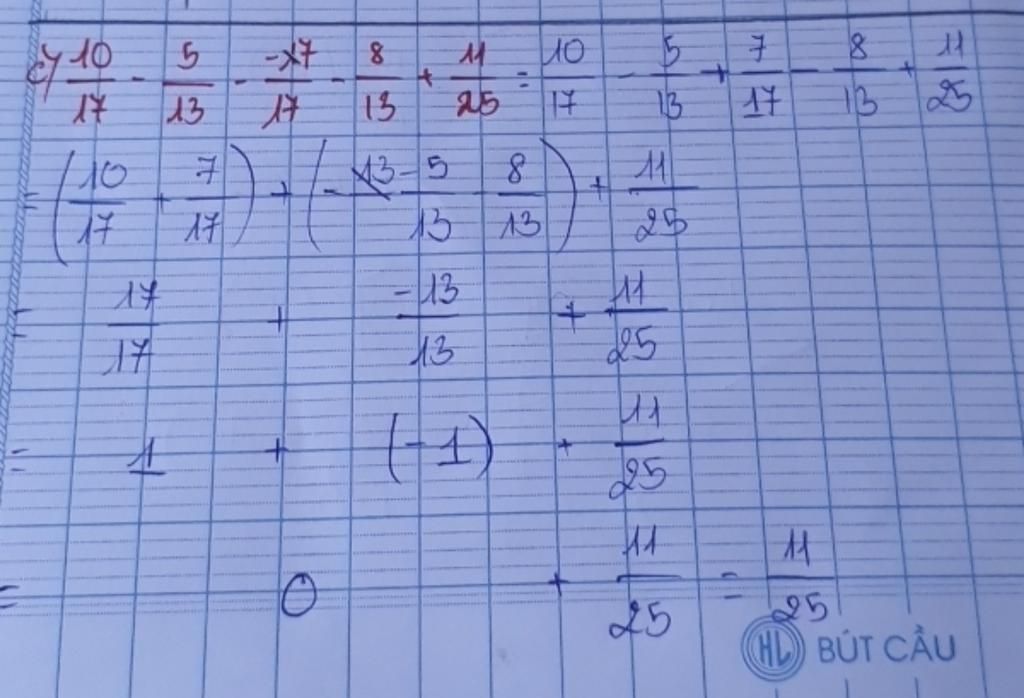 c) 10/17 - 5/13 - -7/17 - 8/13 + 11/25 = 10/17 - 5/13 + 7/17 - 8/13 + 11/25
= (10/17 + 7/17) + (-5/13 - 8/13) + 11/25
= 17/17 + -13/13 + 11/25
= 1 + (-1) + 11/25
= 0 + 11/25 = 11/25
HL BÚT CẦU